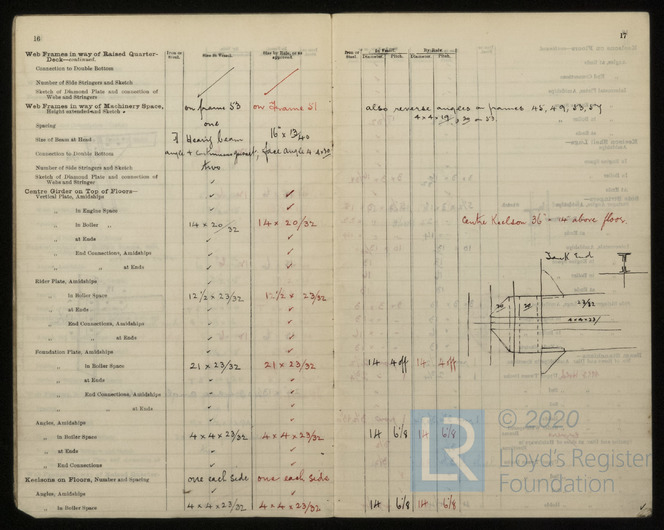 16
Web Frames in way of Raised Quarter-
Deck—continued.
Iron or Steel.
Size in Vessel.
Size by Rule, or as approved.
Connection to Double Bottom
Number of Side Stringers and Sketch
Sketch of Diamond Plate and connection of
Webs and Stringers
Web Frames in way of Machinery Space, on frames 53 on frame 51
Height extended and Sketch
Spacing one
Size of Beam at Head Heavy beam 16" x
Connection to Double Bottom angle & Continuous face angle 4
Number of Side Stringers and Sketch two
Sketch of Diamond Plate and connection of
Webs and Stringer
Centre Girder on Top of Floors—
Vertical Plate, Amidships
„ in Engine Space
„ in Boiler „ 14 x 20/32 14 x 20/32
„ at Ends
„ End Connections, Amidships
„ „ at Ends
Rider Plate, Amidships
„ in Boiler Space 12 1/2 x 23/32 12 1/2 x 23/32
„ at Ends
„ End Connections, Amidships
„ „ at Ends
Foundation Plate, Amidships
„ in Boiler Space 21 x 23/32 21 x 23/32
„ at Ends
„ End Connections, Amidships
„ „ at Ends
Angles, Amidships
„ in Boiler Space 4 x 4 x 23/32 4 x 4 x 23/32
„ at Ends
„ End Connections
Keelsons on Floors, Number and Spacing one each side one each side
Angles, Amidships
„ in Boiler Space 4 x 4 x 23/32 4 x 4 x 23/32
17
Iron or Steel.
In Vessel.
By Rule.
Diameter. Pitch. Diameter. Pitch.
also reverse angles on frames 45, 49, 53, 57
Centre Keelson 36" above floor
Tank End
23/32
4 x 4 x 23/
14 4 off 14 4 off
14 6 1/8 14 6 1/8
14 6 1/8 14 6 1/8
LR
© 2020
Lloyd's Register
Foundation